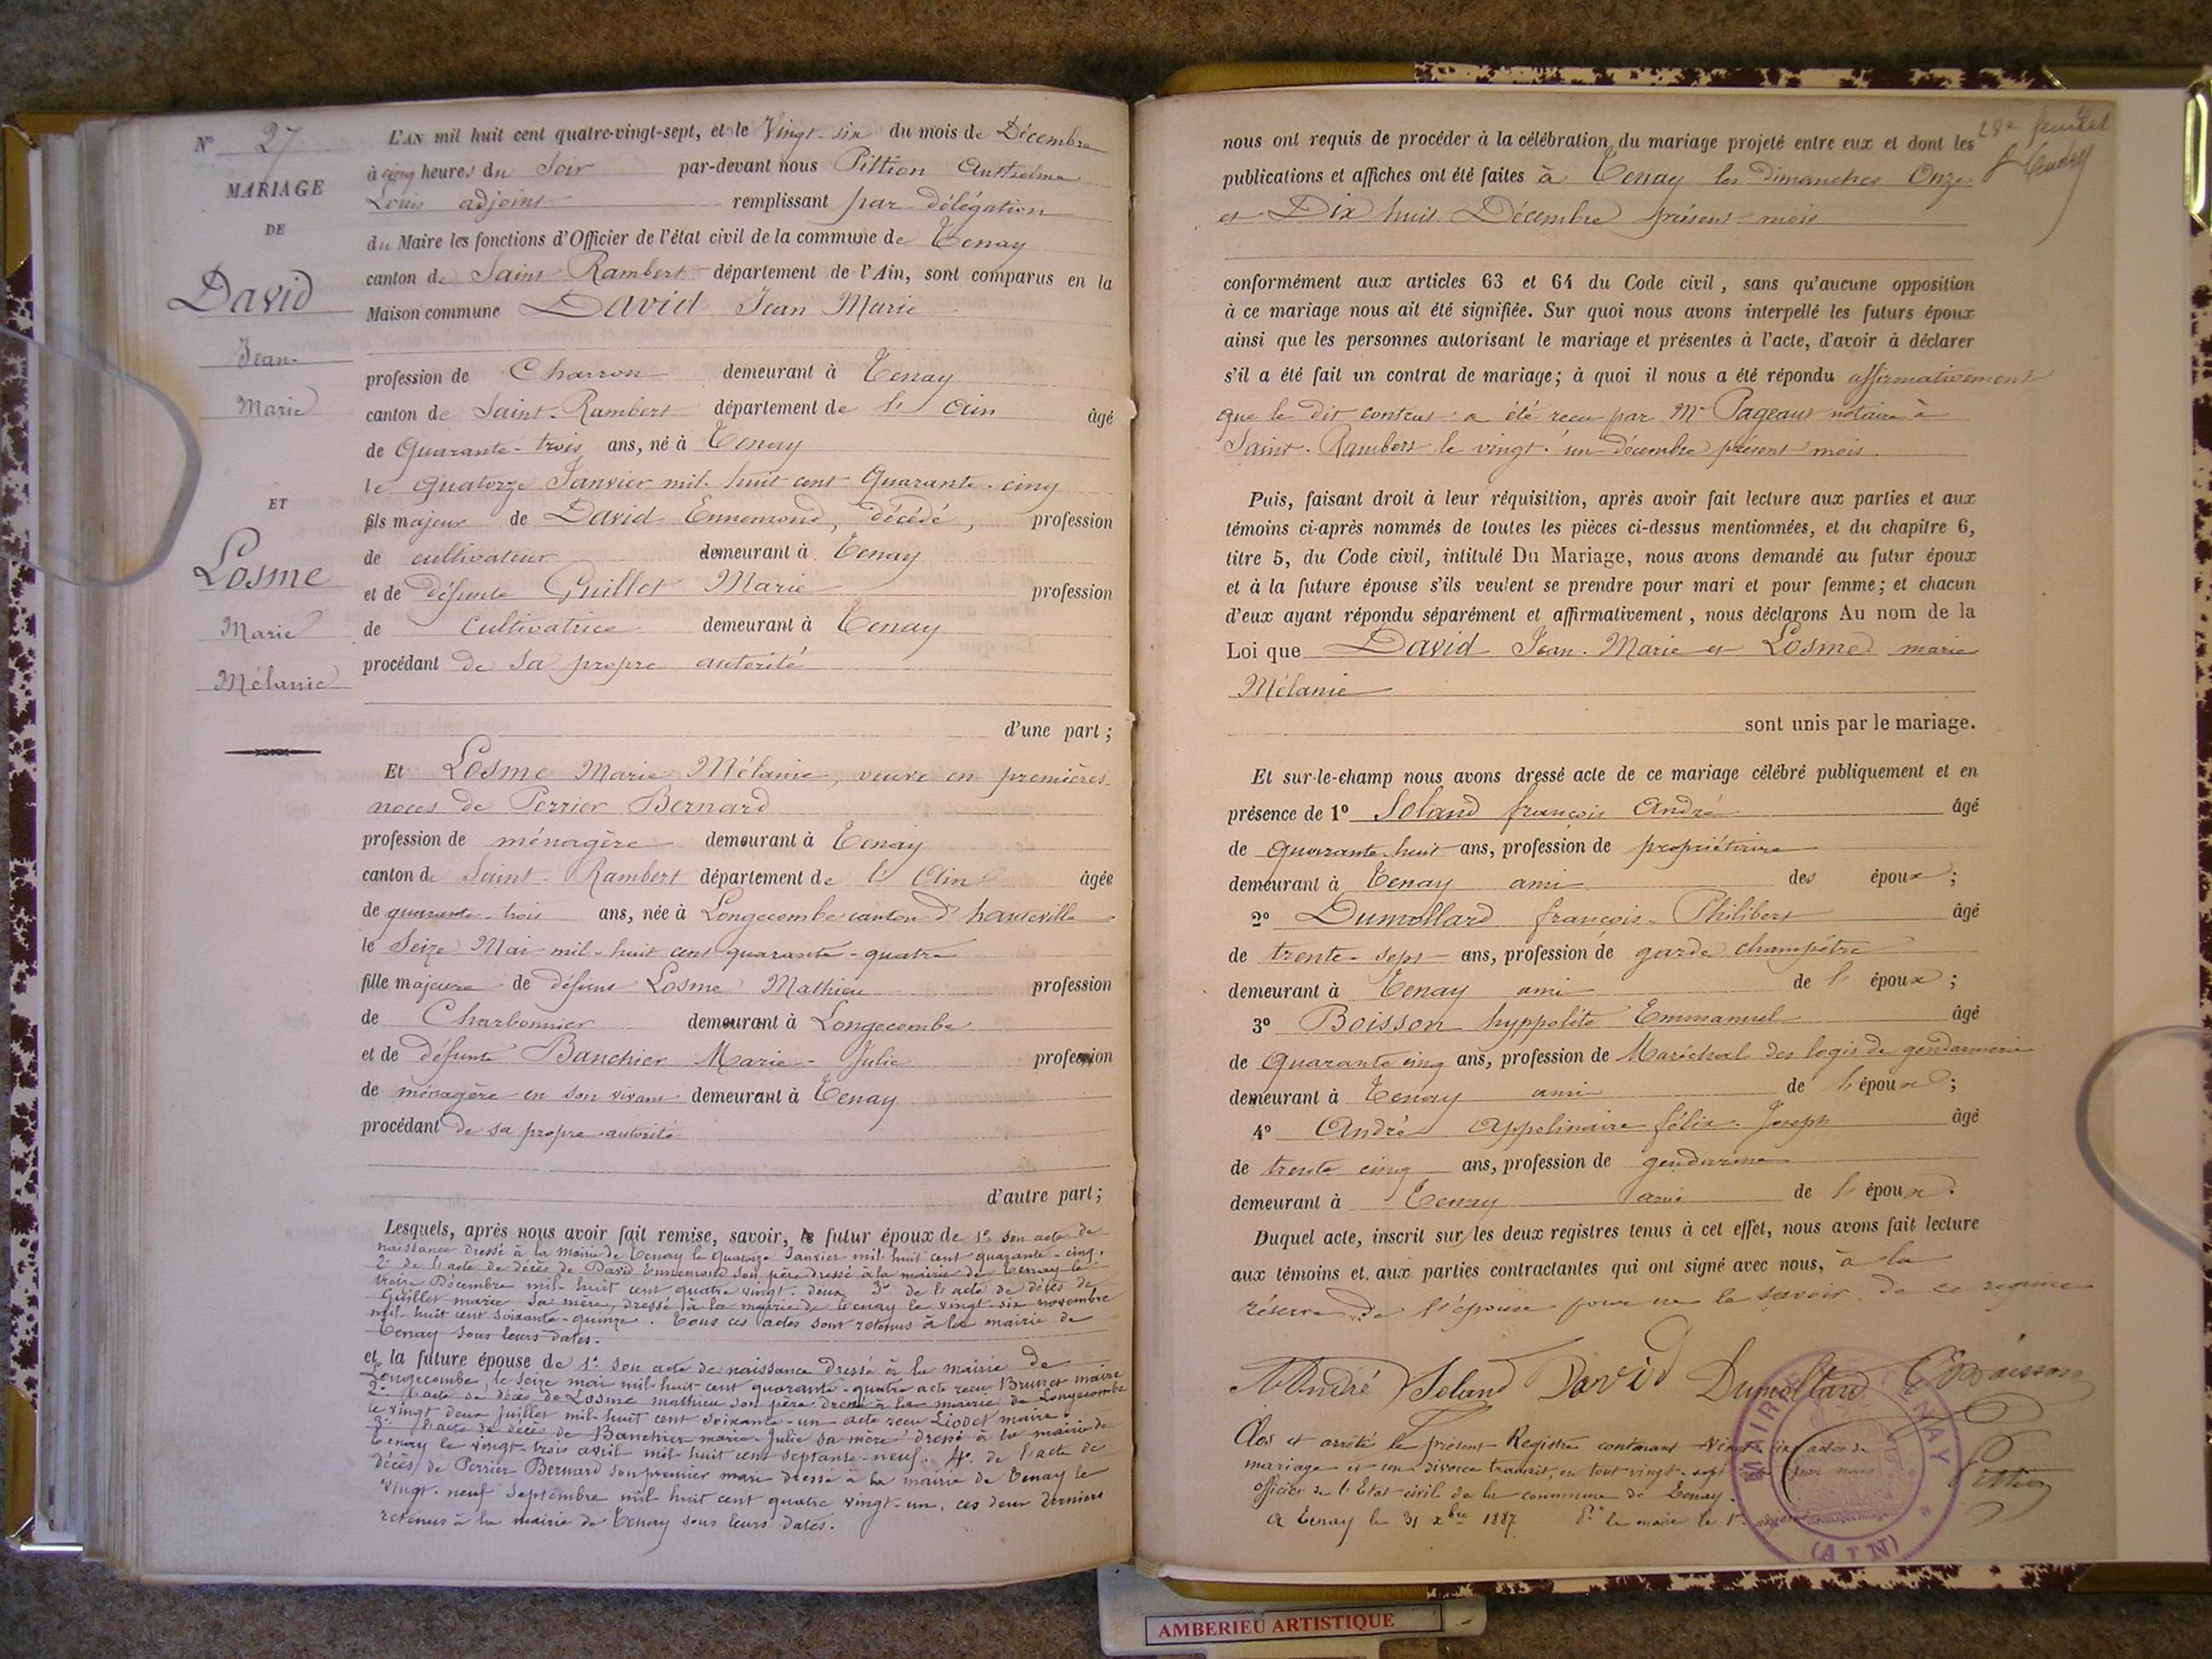 N° 27
MARIAGE
DE
David
Jean-
Marie
ET
Losme
Marie
Mélanie
L'AN mil huit cent quatre-vingt-sept, et le Vingt-six du mois de Décembre
à cinq heures du Soir par-devant nous Pittion Anthelme
Louis adjoint remplissant par délégation
du Maire les fonctions d'Officier de l'état civil de la commune de Tenay
canton de Saint Rambert département de l'Ain, sont comparus en la
Maison commune David Jean Marie
profession de Charron demeurant à Tenay
canton de Saint-Rambert département de l'Ain âgé
de Quarante-trois ans, né à Tenay
le Quatorze Janvier mil huit cent Quarante-cinq
fils majeur de David Ennemond, décédé, profession
de cultivateur demeurant à Tenay
et de défunte Guillot Marie profession
de Cultivatrice demeurant à Tenay
procédant de sa propre autorité
d'une part ;
Et Losme Marie Mélanie, veuve en premières
noces de Perrier Bernard
profession de ménagère demeurant à Tenay
canton de Saint-Rambert département de l'Ain âgée
de quarante-trois ans, née à Longecombe canton d'hauteville
le Seize Mai mil-huit cent quarante-quatre
fille majeure de défunt Losme Mathieu profession
de Charbonnier demeurant à Longecombe
et de défunte Banchier Marie-Julie profession
de ménagère en son vivant demeurant à Tenay
procédant de sa propre autorité
d'autre part ;
Lesquels, après nous avoir fait remise, savoir, le futur époux de 1° son acte de
naissance dressé à la mairie de Tenay le Quatorze Janvier mil huit cent quarante-cinq.
2° de l'acte de décès de David Ennemond son père dressé à la mairie de Tenay le
treize Décembre mil-huit cent quatre vingt-deux 3° de l'acte de décès de
Guillot marie sa mère, dressé à la mairie de Tenay le vingt-six novembre
mil-huit cent soixante-quinze. Tous ces actes sont retenus à la mairie de
Tenay sous leurs dates.
et la future épouse de 1° son acte de naissance dressé à la mairie de
Longecombe, le seize mai mil-huit-cent quarante-quatre acte reçu Brunet maire
2° l'acte de décès de Losme mathieu son père dressé à la mairie de Longecombe
le vingt deux Juillet mil-huit cent soixante-un acte reçu Liodet maire.
3° l'acte de décès de Banchier marie-Julie sa mère dressé à la mairie de
Tenay le vingt-trois avril mil-huit cent septante-neuf. 4° de l'acte de
décès de Perrier Bernard son premier mari dressé à la mairie de Tenay le
vingt-neuf Septembre mil huit cent quatre vingt-un, ces deux derniers
retenus à la mairie de Tenay sous leurs dates.
28e feuillet
nous ont requis de procéder à la célébration du mariage projeté entre eux et dont les
publications et affiches ont été faites à Tenay les Dimanches Onze
et Dix huit Décembre présent mois
conformément aux articles 63 et 64 du Code civil, sans qu'aucune opposition
à ce mariage nous ait été signifiée. Sur quoi nous avons interpellé les futurs époux
ainsi que les personnes autorisant le mariage et présentes à l'acte, d'avoir à déclarer
s'il a été fait un contrat de mariage ; à quoi il nous a été répondu affirmativement
que le dit contrat a été reçu par Me Pageaut notaire à
Saint-Rambert le vingt-un décembre présent mois.
Puis, faisant droit à leur réquisition, après avoir fait lecture aux parties et aux
témoins ci-après nommés de toutes les pièces ci-dessus mentionnées, et du chapitre 6,
titre 5, du Code civil, intitulé Du Mariage, nous avons demandé au futur époux
et à la future épouse s'ils veulent se prendre pour mari et pour femme ; et chacun
d'eux ayant répondu séparément et affirmativement, nous déclarons Au nom de la
Loi que David Jean-Marie et Losme marie
Mélanie
sont unis par le mariage.
Et sur-le-champ nous avons dressé acte de ce mariage célébré publiquement et en
présence de 1° Soland françois André âgé
de Quarante-huit ans, profession de propriétaire
demeurant à Tenay ami des époux ;
2° Dumollard françois-Philibert âgé
de trente-sept ans, profession de garde champêtre
demeurant à Tenay ami de l'époux ;
3° Boisson hyppolite Emmanuel âgé
de Quarante cinq ans, profession de Maréchal des logis de gendarmerie
demeurant à Tenay ami de l'époux ;
4° André Appolinaire félix-Joseph âgé
de trente cinq ans, profession de gendarme
demeurant à Tenay ami de l'époux.
Duquel acte, inscrit sur les deux registres tenus à cet effet, nous avons fait lecture
aux témoins et aux parties contractantes qui ont signé avec nous, à la
réserve de l'épouse pour ne le savoir de ce requise
André Soland David Dumollard Boisson
Clos et arrêté le présent Registre contenant Vingt six actes de
mariage et un divorce transcrit, en tout vingt-sept par nous
officier de l'Etat-civil de la commune de Tenay.
A Tenay le 31 xbre 1887 Pr le maire le 1er adjoint
Pittion
MAIRIE TENAY
(AIN)
AMBERIEU ARTISTIQUE